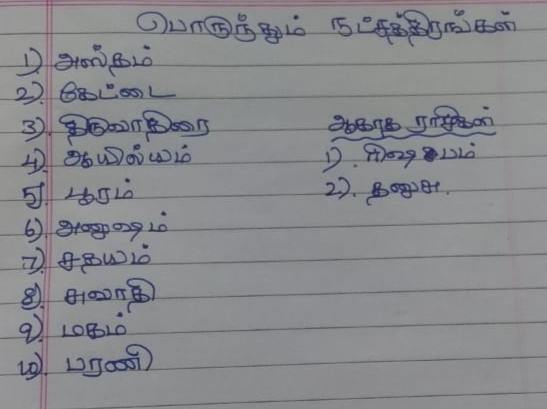 பொருந்தும் நட்சத்திரங்கள்
1) அஸ்தம்
2) கேட்டை
3) திருவாதிரை
4) ஆயில்யம்
5) பூரம்
6) அனுஷம்
7) சதயம்
8) சுவாதி
9) மகம்
10) பரணி
ஆகாத ராசிகள்
1) ரிஷபம்
2) தனுசு.